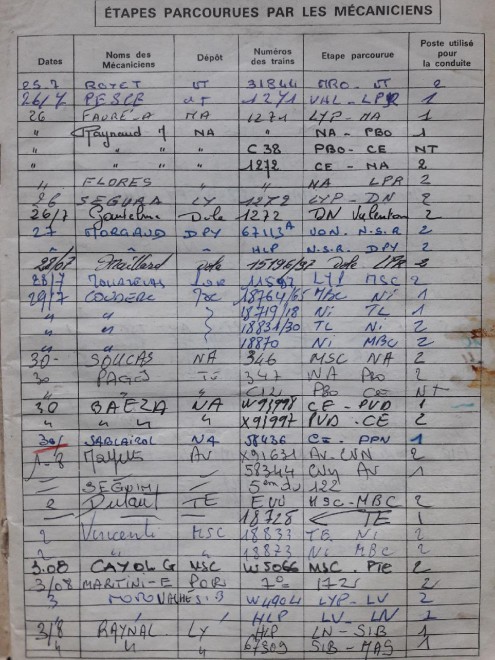 ÉTAPES PARCOURUES PAR LES MÉCANICIENS
Dates Noms des Mécaniciens Dépôt Numéros des trains Etape parcourue Poste utilisé pour la conduite
25.7 BOTET VT 31844 MRO - VT 2
26/7 PESCE VT 1271 VAL - LPR 1
26 FAURE-A MA 1271 LYP - MA 1
" Raynaud NA " NA - PBO 1
" " " C 38 PBO - CE NT
" " " 1272 CE - NA 2
" FLORES " NA LPR 2
26 SEGURA LY 1272 LYP - DN 2
26/7 Dole 1272 DN Valenton 2
27 MORGAUD DPY 67113A VON. N.S.R 2
" " HLP N.S.R. DPY 2
28/07 Maillard Dole 15196/97 Dole LPR 2
28/7 LYP MSC 2
29/7 COUDERC 18764/65 MBC Ni 1
" " 18719/18 Ni TL 1
" " 18831/30 TL Ni 2
" " 18870 Ni MBC 2
30- SOUCAS NA 346 MSC NA 2
30 PAGÈS 347 NA PBO 2
" " C121 PBO CE NT
30 BAEZA NA W97998 CE - PVD 1
" " " X91997 PVD - CE 2
30/ SABLAIROL NA 58436 CE - PPN 1
1-8 AV X91631 AV - CVN 2
58344 CVN AV 1
SEGUIMI 5ème du 122
2 Dulaut TE EVV MSC - MBC 2
18728 TE 1
2 Vincent MSC 18833 TE Ni 2
2 " " 18873 Ni MBC 2
3.08 CAYOL G MSC W5066 MSC - PTE 2
3/08 MARTINI-E POR 7° 1721 2
3 SIB W4904 LYP - LV 2
HLP LV - LN 2
3/8 RAYNAL LY HLP LN - SIB 1
" " " 67309 SIB - MAS 1